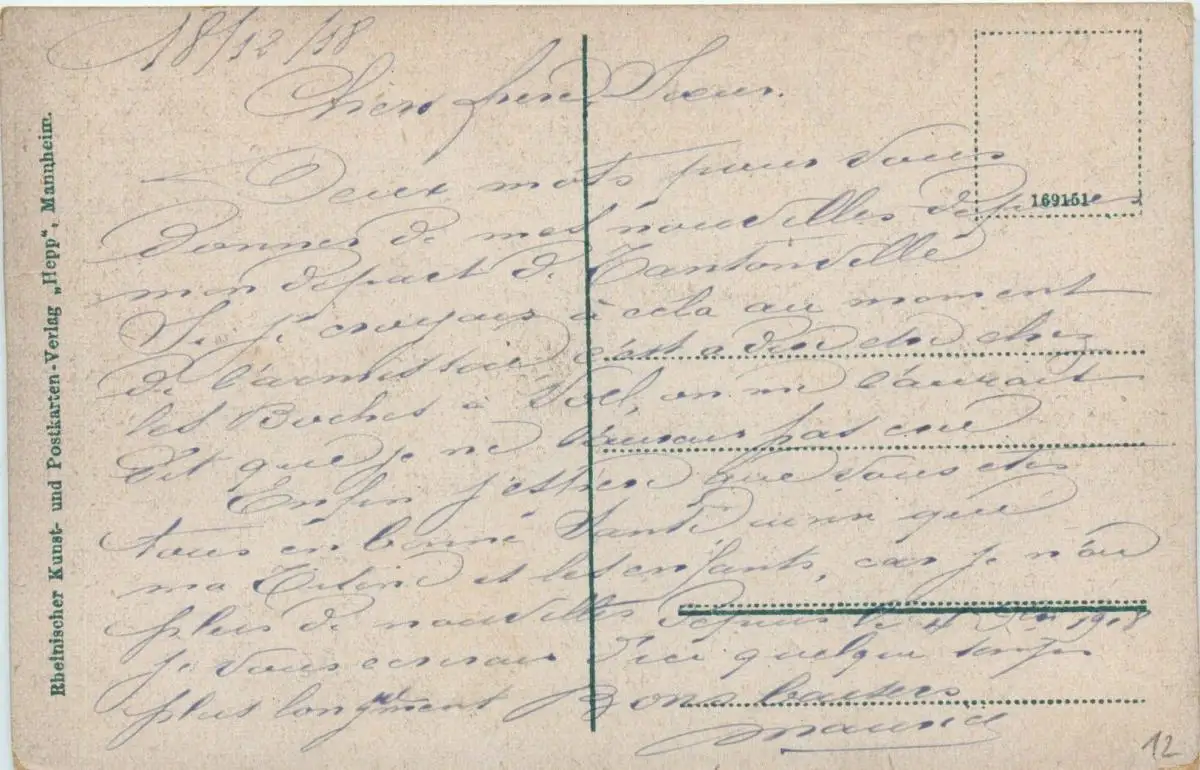 18/12/18
Chers frère, Soeur.
Deux mots pour vous
donner de mes nouvelles depuis
mon départ de Tantonville
Si je croyais à cela au moment
de l'armistice c'est a dire etre chez
les Boches à Vol, on me l'aurait
dit que je ne l'aurais pas cru
Enfin j'espère que vous etes
tous en bonne Santé ainsi que
ma Titine et les enfants, car je n'ai
plus de nouvelles Depuis le 4 1918
je vous ecrirais d'ici quelque temps
plus longuement Bons baisers
Maurice
Rheinischer Kunst- und Postkarten-Verlag „Hepp“, Mannheim.
169151
12